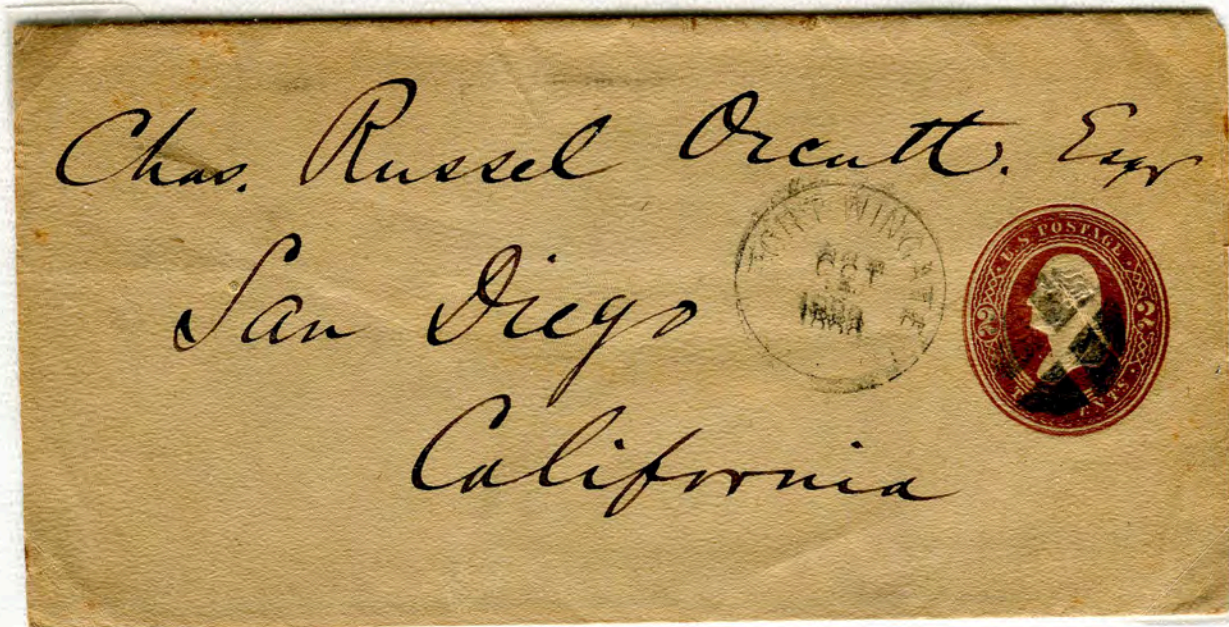 Chas. Russel Orcutt. Esqr
San Diego
California
FORT WINGATE
OCT
U.S. POSTAGE
2 2
CENTS